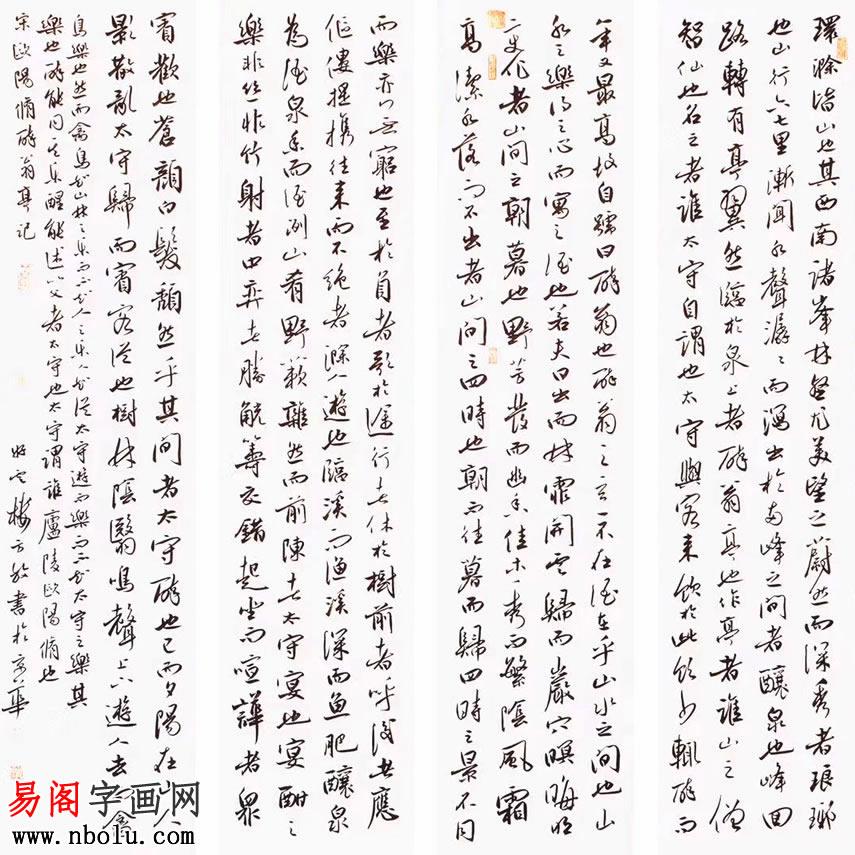 環滁皆山也其西南諸峯林壑尤美望之蔚然而深秀者琅琊
也山行六七里漸聞水聲潺潺而瀉出於兩峰之間者釀泉也峰回
路轉有亭翼然臨於泉上者醉翁亭也作亭者誰山之僧
智仙也名之者誰太守自謂也太守與客來飲於此飲少輒醉而
年又最高故自號曰醉翁也醉翁之意不在酒在乎山水之間也山
水之樂得之心而寓之酒也若夫日出而林霏開雲歸而巖穴暝晦明
變化者山間之朝暮也野芳發而幽香佳木秀而繁陰風霜
高潔水落而石出者山間之四時也朝而往暮而歸四時之景不同
而樂亦無窮也至於負者歌於途行者休於樹前者呼後者應
傴僂提攜往來而不絕者滁人遊也臨溪而漁溪深而魚肥釀泉
為酒泉香而酒洌山肴野蔌雜然而前陳者太守宴也宴酣之
樂非絲非竹射者中弈者勝觥籌交錯起坐而喧譁者衆
賓歡也蒼顏白髮頹然乎其間者太守醉也已而夕陽在山人
影散亂太守歸而賓客從也樹林陰翳鳴聲上下遊人去而禽
鳥樂也然而禽鳥知山林之樂而不知人之樂人知從太守遊而樂而不知太守之樂其
樂也醉能同其樂醒能述以文者太守也太守謂誰廬陵歐陽脩也
宋歐陽脩醉翁亭記
樓方放書於京華
易阁字画网
www.nbolu.com